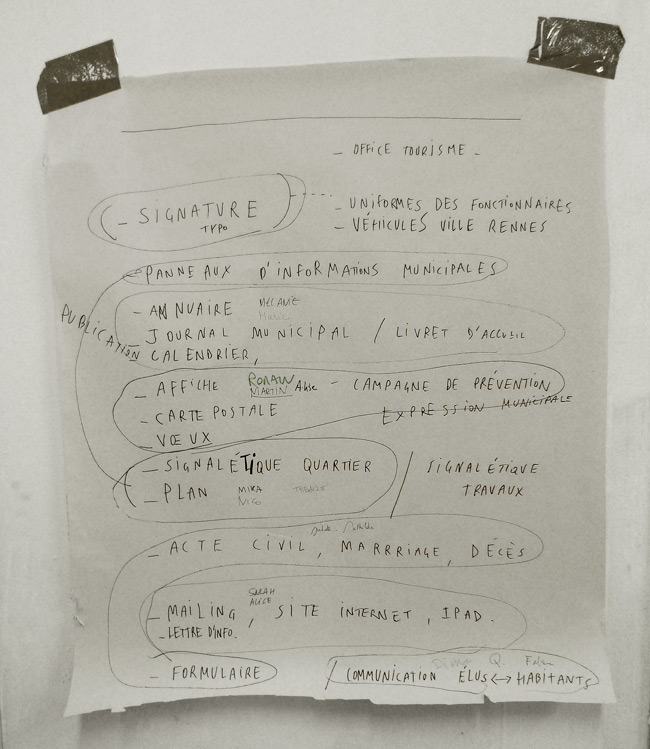 — OFFICE TOURISME —
— SIGNATURE
TYPO
— UNIFORMES DES FONCTIONNAIRES
— VÉHICULES VILLE RENNES
— PANNEAUX D'INFORMATIONS MUNICIPALES
PUBLICATION
— ANNUAIRE MELANIE
Marie
— JOURNAL MUNICIPAL / LIVRET D'ACCUEIL
CALENDRIER,
— AFFICHE ROMAIN
MARTIN Alise — CAMPAGNE DE PRÉVENTION
— CARTE POSTALE EXPRESSION MUNICIPALE
— VŒUX
— SIGNALÉTIQUE QUARTIER / SIGNALÉTIQUE
TRAVAUX
— PLAN MIKA
NICO
— ACTE CIVIL, MARRRIAGE, DÉCÈS
SARAH
ALICE
— MAILING, SITE INTERNET, IPAD.
— LETTRE D'INFO.
— FORMULAIRE
/ COMMUNICATION ÉLUS ↔ HABITANTS